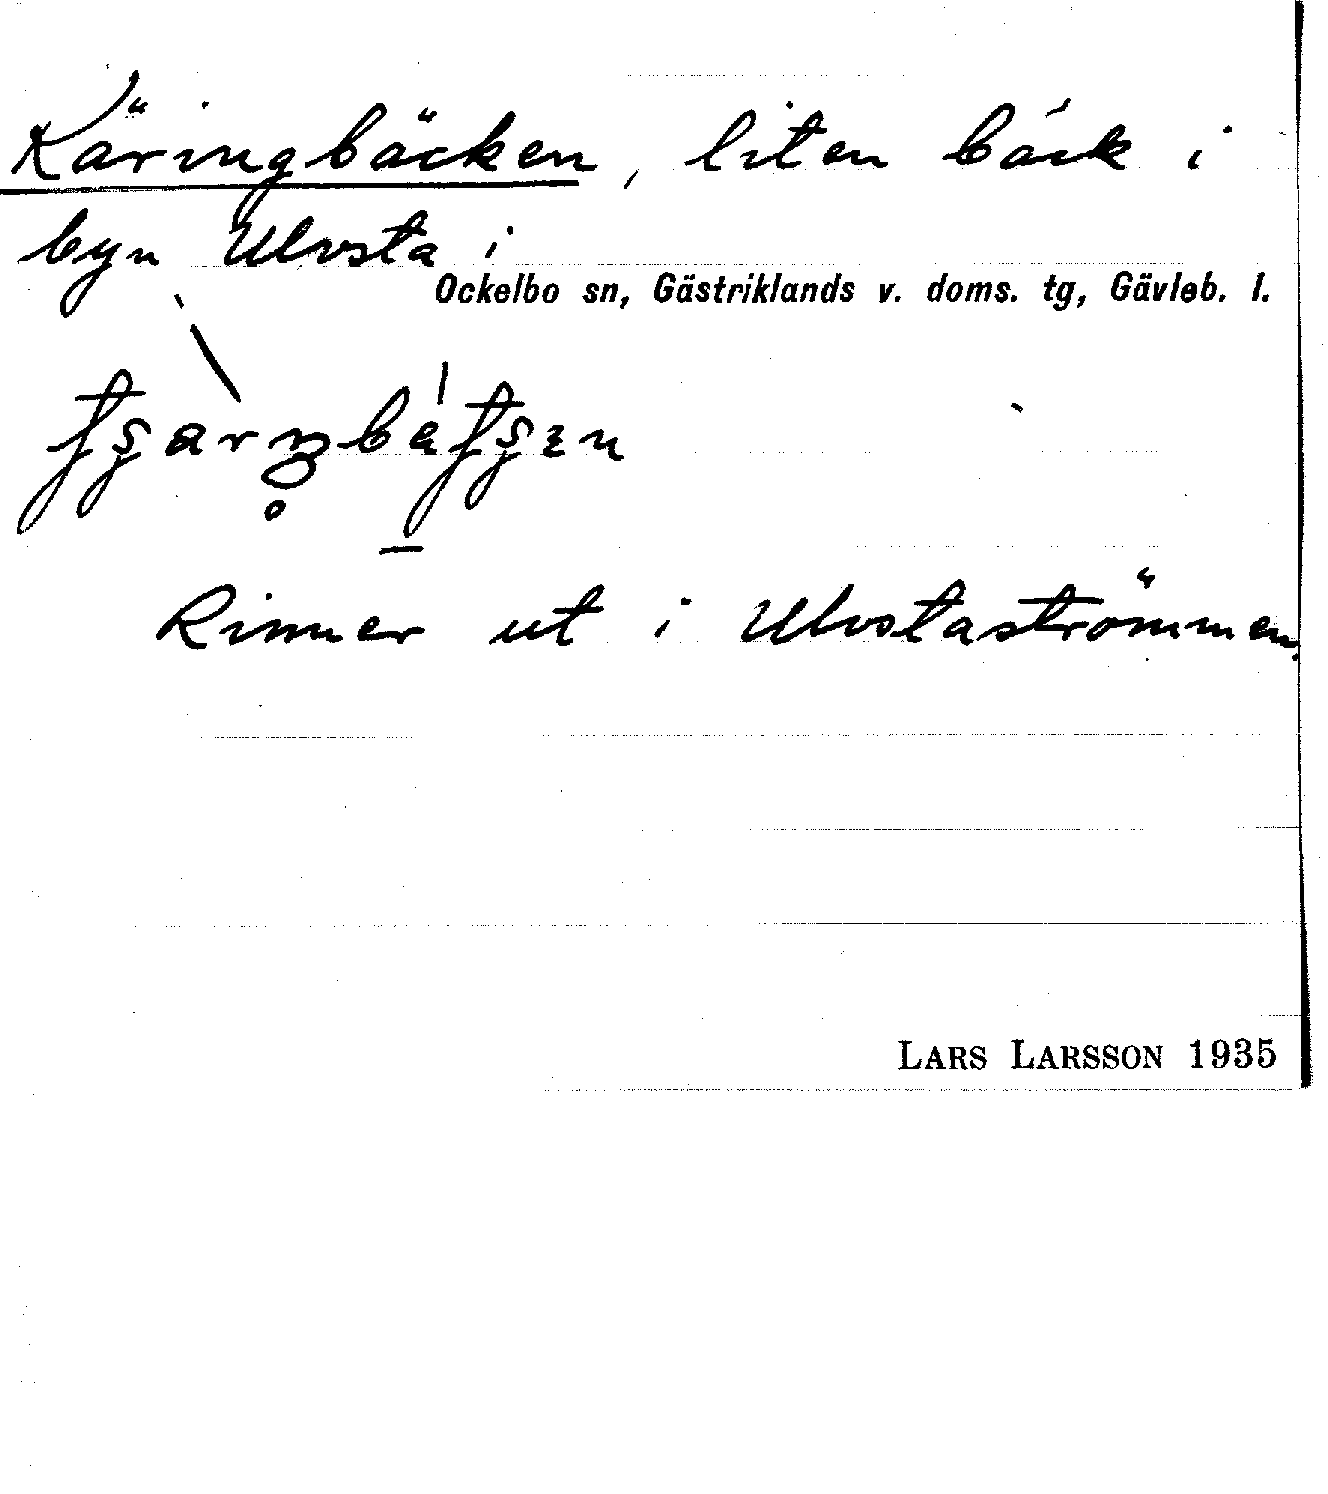 Käringbäcken, liten bäck i
byn Ulvsta i
Ockelbo sn, Gästriklands v. doms. tg, Gävleb. l.
Rinner ut i Ulvstaströmmen.
LARS LARSSON 1935